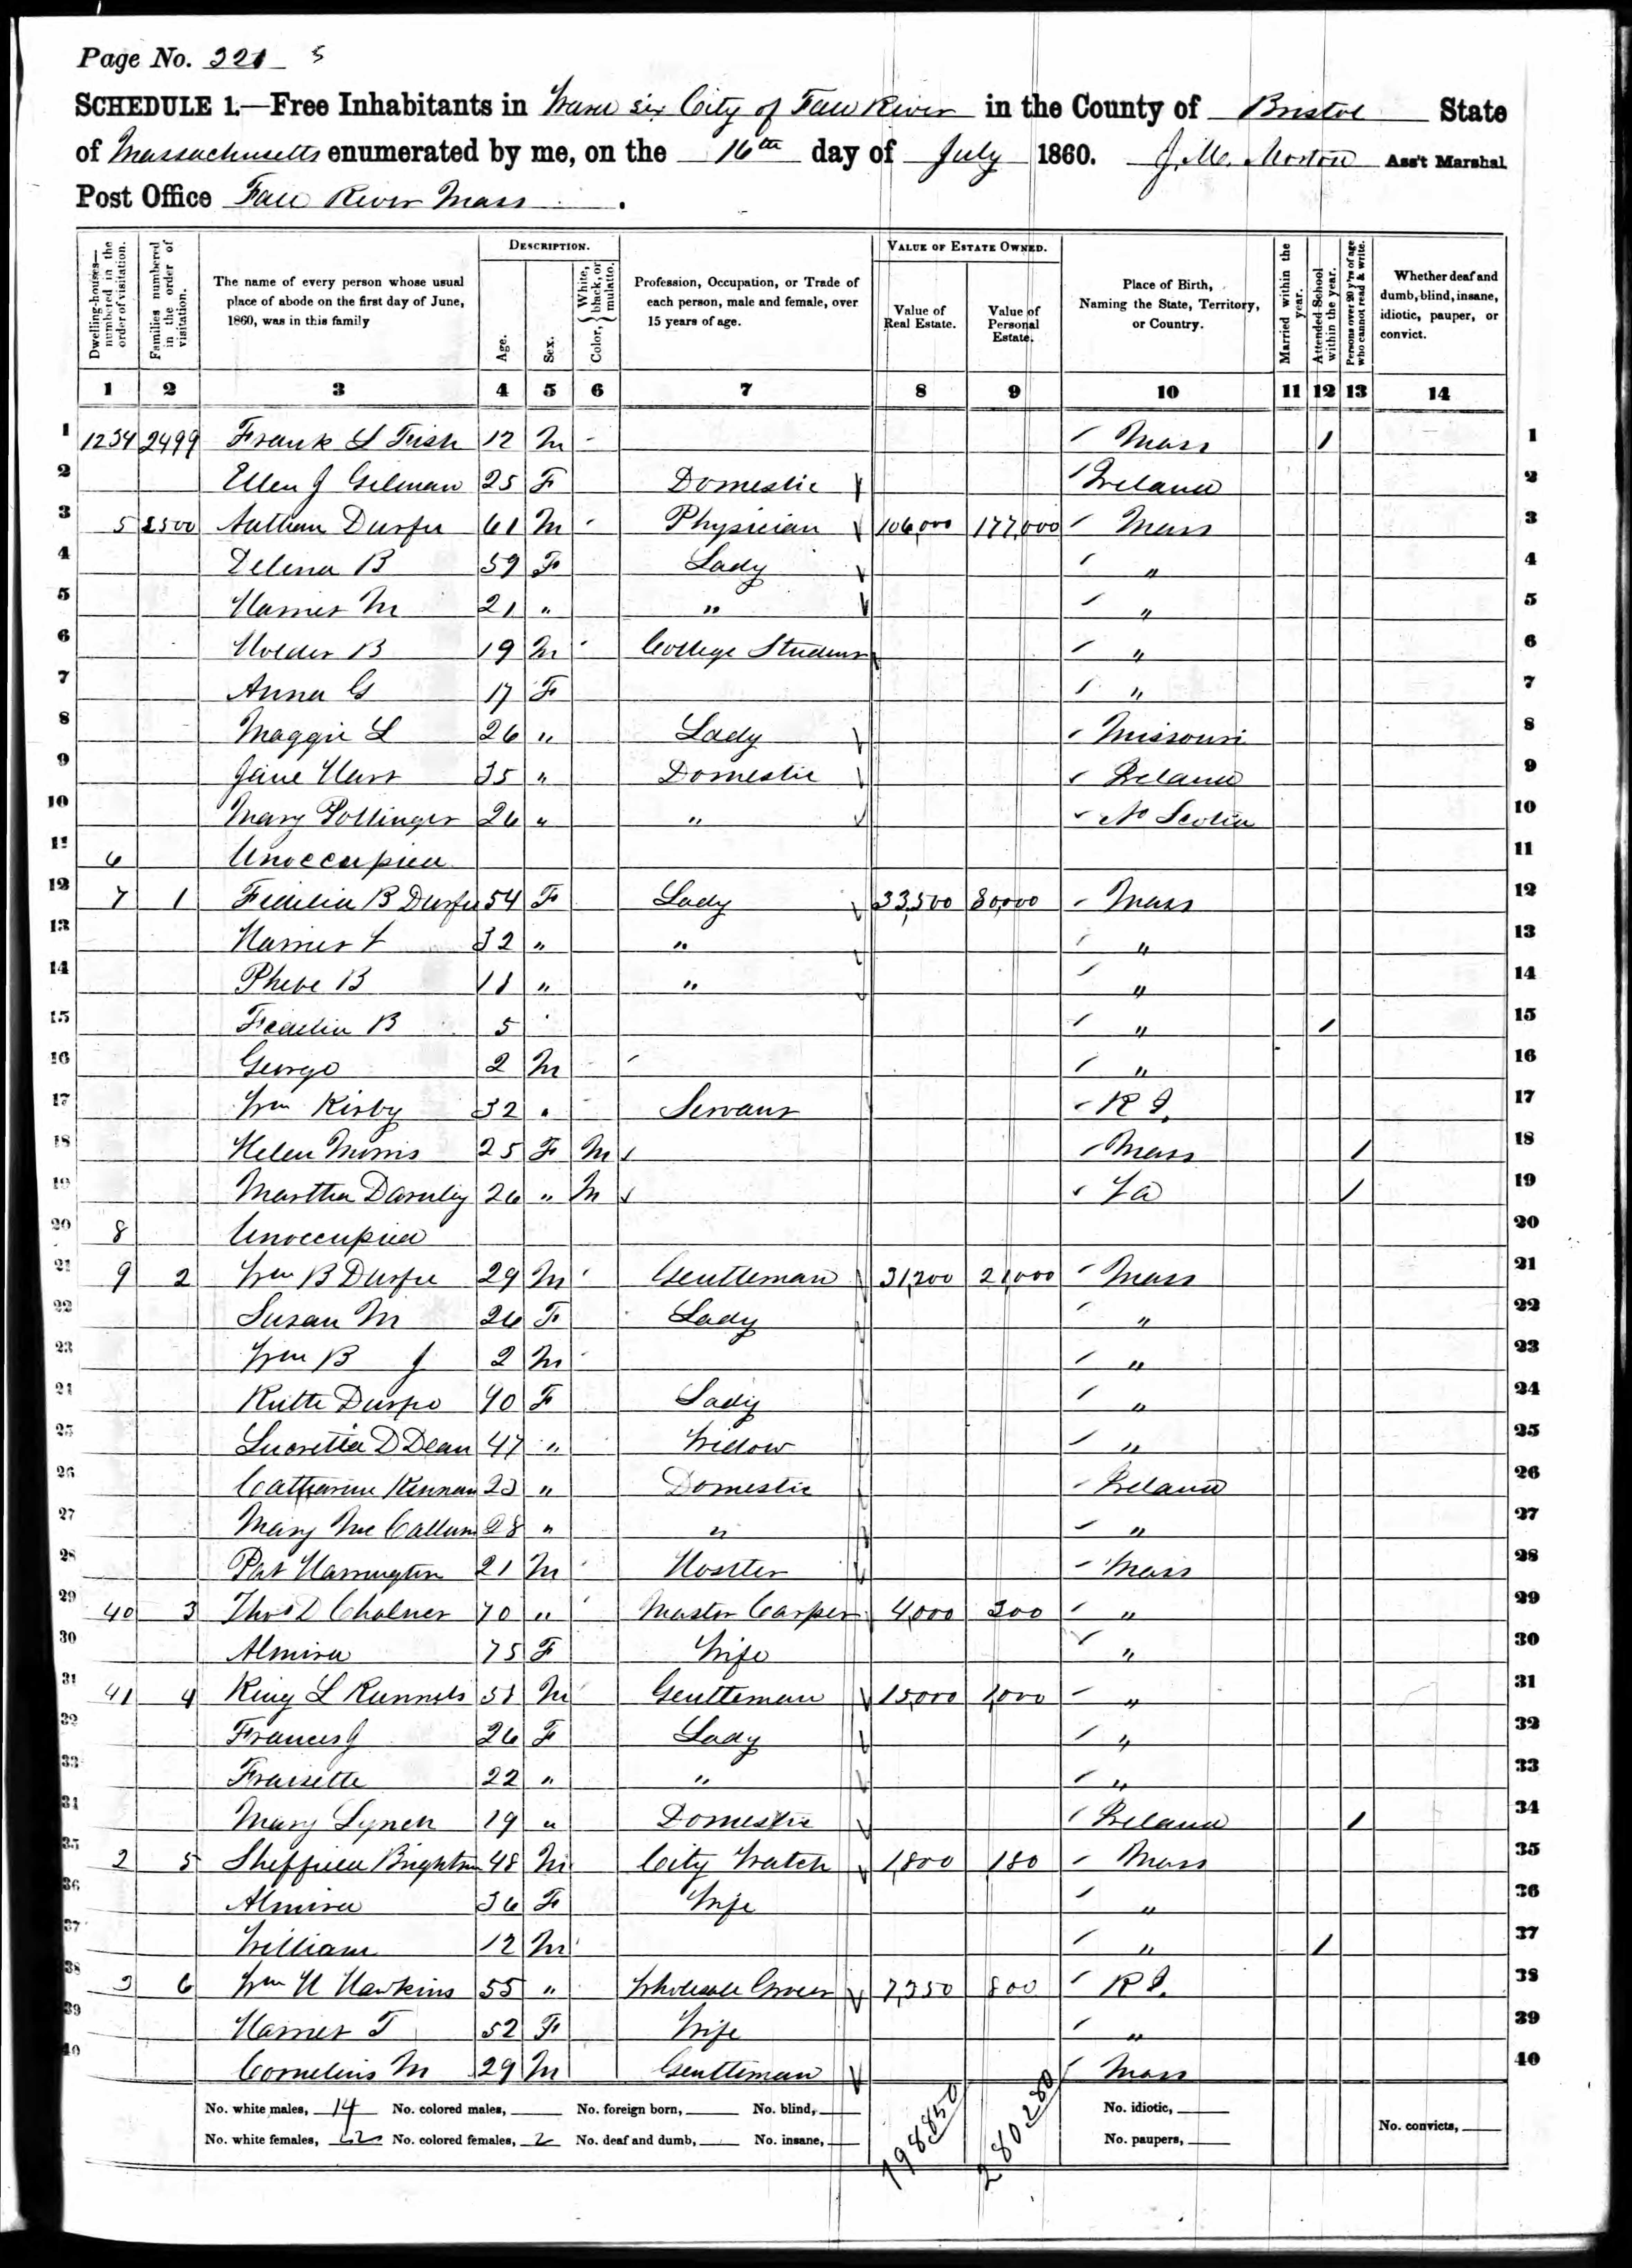 Page No. 221 5
SCHEDULE 1.—Free Inhabitants in Ward six City of Fall River in the County of Bristol State
of Massachusetts enumerated by me, on the 16th day of July 1860. J. M. Morton Ass't Marshal
Post Office Fall River Mass.
Dwelling-houses—numbered in the order of visitation.
Families numbered in the order of visitation.
The name of every person whose usual place of abode on the first day of June, 1860, was in this family
DESCRIPTION.
Age.
Sex.
Color, White, black, or mulatto.
Profession, Occupation, or Trade of each person, male and female, over 15 years of age.
VALUE OF ESTATE OWNED.
Value of Real Estate.
Value of Personal Estate.
Place of Birth, Naming the State, Territory, or Country.
Married within the year.
Attended School within the year.
Persons over 20 y'rs of age who cannot read & write.
Whether deaf and dumb, blind, insane, idiotic, pauper, or convict.
1 2 3 4 5 6 7 8 9 10 11 12 13 14
1 1234 2499 Frank L Fish 12 M Mass / 1
2 Ellen J Gilman 25 F Domestic Ireland 2
3 5 2500 Nathan Durfee 61 M Physician 106,000 177,000 Mass 3
4 Delina B 59 F Lady " 4
5 Harriet M 21 " " " 5
6 Holder B 19 M College Student " 6
7 Anna G 17 F " 7
8 Maggie L 26 " Lady Missouri 8
9 Jane Hart 35 " Domestic Ireland 9
10 Mary Pollinger 26 " " N Scotia 10
11 6 Unoccupied 11
12 7 1 Fidelia B Durfee 54 F Lady 33,500 80,000 Mass 12
13 Harriet 32 " " " 13
14 Phebe B 11 " " " 14
15 Fidelia B 5 " / 15
16 George 2 M " 16
17 Wm Kirby 32 " Servant R I. 17
18 Helen Morris 25 F M Mass / 18
19 Martha 26 " M / 19
20 8 Unoccupied 20
21 9 2 Wm B Durfee 29 M Gentleman 31,200 21,000 Mass 21
22 Susan M 26 F Lady " 22
23 Wm B J 2 M " 23
24 Ruth Durfee 90 F Lady " 24
25 Lucretia D Dean 47 " Widow " 25
26 Catharine Kennan 23 " Domestic Ireland 26
27 Mary McCallum 28 " " " 27
28 Pat Harrington 21 M Hostler Mass 28
29 40 3 Thos D Chaloner 70 " Master Carpen 4,000 300 " 29
30 Almira 75 F Wife " 30
31 41 4 King L Runnels 51 M Gentleman 15,000 1,000 " 31
32 Frances J 26 F Lady " 32
33 22 " " " 33
34 Mary Lynch 19 " Domestic Ireland / 34
35 2 5 Sheffield Brightman 48 M City Watch 1,800 180 Mass 35
36 Almira 36 F Wife " 36
37 William 12 M " / 37
38 3 6 Wm H Hawkins 55 " Wholesale Grocer 7,350 800 R I. 38
39 Harriet T 52 F Wife " 39
40 Cornelius M 29 M Gentleman Mass 40
No. white males, 14 No. colored males, No. foreign born, No. blind, 198850 280280 No. idiotic,
No. white females, 22 No. colored females, 2 No. deaf and dumb, No. insane, No. paupers, No. convicts,